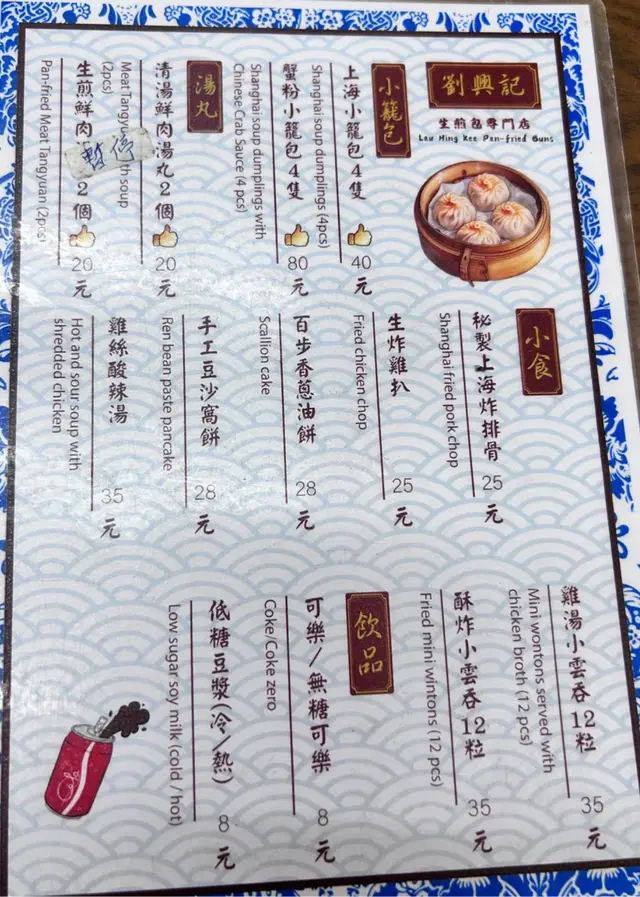 劉興記
生煎包專門店
Lau Hing Kee Pan-fried Buns
小籠包
上海小籠包4隻
40元
Shanghai soup dumplings (4pcs)
蟹粉小籠包4隻
80元
Shanghai soup dumplings with
Chinese Crab Sauce (4 pcs)
湯丸
清湯鮮肉湯丸2個
20元
Meat Tangyuan
th soup
(2pcs)
生煎鮮肉
2個
20元
暫停
Pan-fried Meat Tangyuan (2pcs)
小食
秘製上海炸排骨
25元
Shanghai fried pork chop
生炸雞扒
25元
Fried chicken chop
百步香蔥油餅
28元
Scallion cake
手工豆沙窩餅
28元
Ren bean paste pancake
雞絲酸辣湯
35元
Hot and sour soup with
shredded chicken
雞湯小雲吞12粒
35元
Mini wontons served with
chicken broth (12 pcs)
酥炸小雲吞12粒
35元
Fried mini wintons (12 pcs)
飲品
可樂/無糖可樂
8元
Coke/Coke zero
低糖豆漿(冷/熱)
8元
Low sugar soy milk (cold / hot)